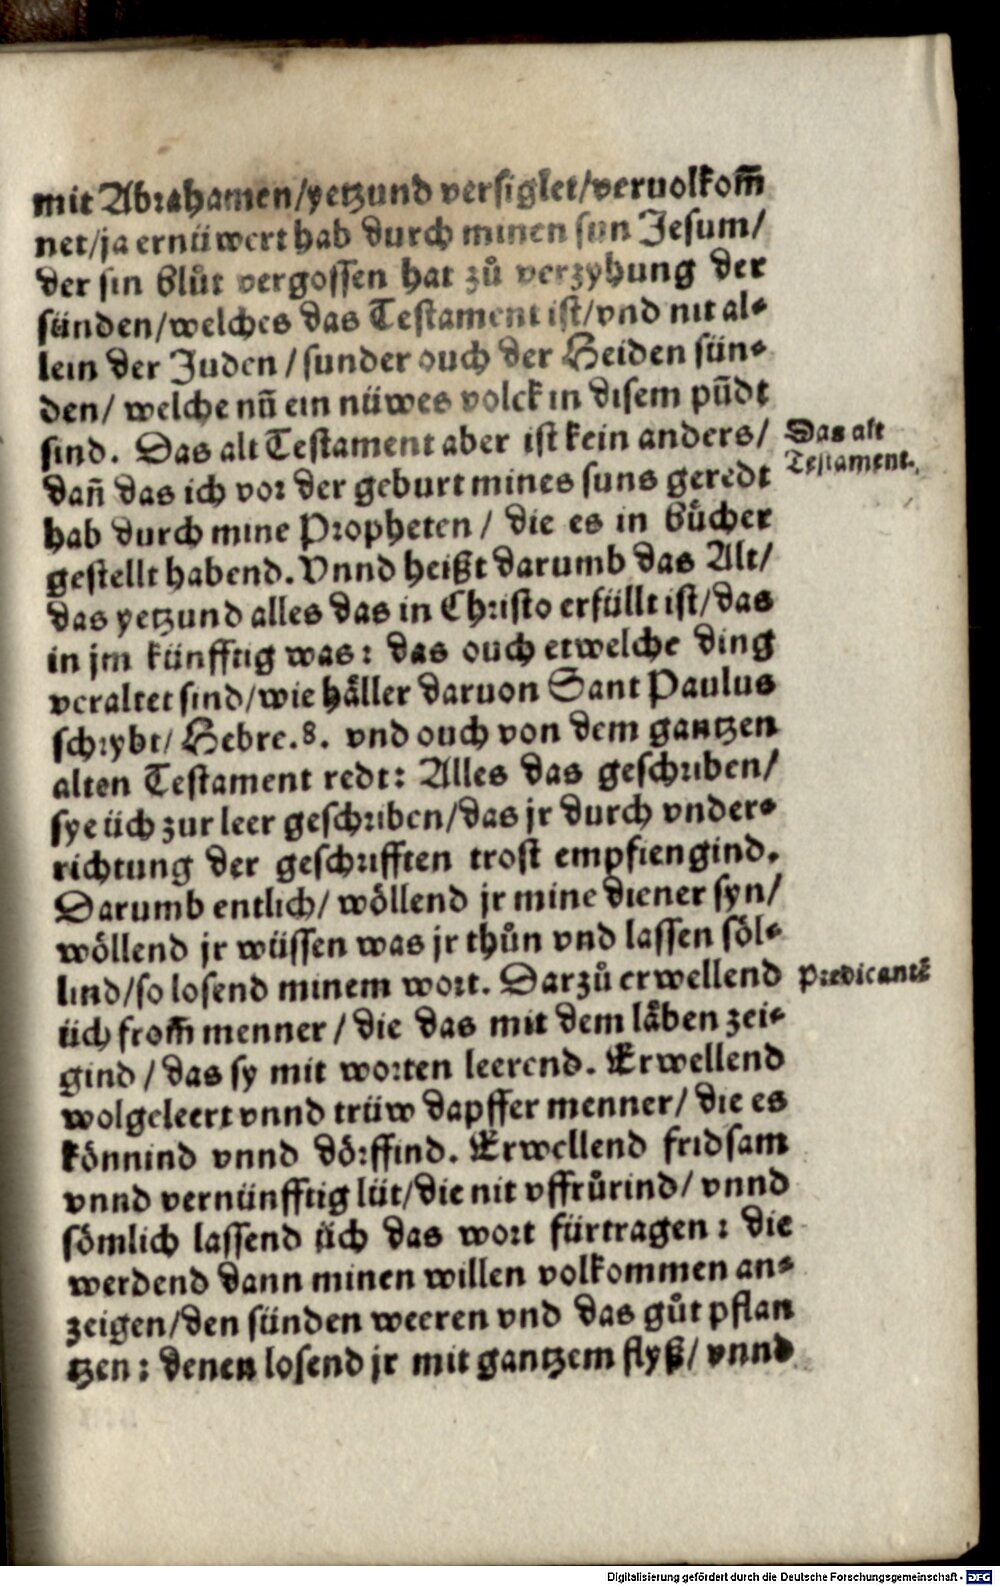 mit Abrahamen/yetzund versiglet/veruolkom̄
net/ja ernüwert hab durch minen sun Jesum/
der sin Blůt vergossen hat zů verzyhung der
sünden/welches das Testament ist/vnd nit al⸗
lein der Juden / sunder ouch der Heiden sün⸗
den/ welche nū ein nüwes volck in disem pūdt
sind. Das alt Testament aber ist kein anders/
dañ das ich vor der geburt mines suns geredt
hab durch mine Propheten / die es in Bůcher
gestellt habend. Vnnd heißt darumb das Alt/
das yetzund alles das in Christo erfüllt ist/das
in jm künfftig was: das ouch etwelche ding
veraltet sind/wie häller daruon Sant Paulus
schrybt/ Hebre.8. vnd ouch von dem gantzen
alten Testament redt: Alles das geschriben/
sye üch zur leer geschriben/das jr durch vnder⸗
richtung der geschrifften trost empfiengind.
Darumb entlich/ wöllend jr mine diener syn/
wöllend jr wüssen was jr thůn vnd lassen söl⸗
lind/so losend minem wort. Darzů erwellend
üch from̄ menner / die das mit dem läben zei⸗
gind / das sy mit worten leerend. Erwellend
wolgeleert vnnd trüw dapffer menner/ die es
könnind vnnd dörffind. Erwellend fridsam
vnnd vernünfftig lüt/die nit vffrůrind/ vnnd
sömlich lassend üch das wort fürtragen: die
werdend dann minen willen volkommen an⸗
zeigen/den sünden weeren vnd das gůt pflan
tzen: denen losend jr mit gantzem flyß/ vnnd
Das alt
Testament.
Predicantē
Digitalisierung gefördert durch die Deutsche Forschungsgemeinschaft - DFG